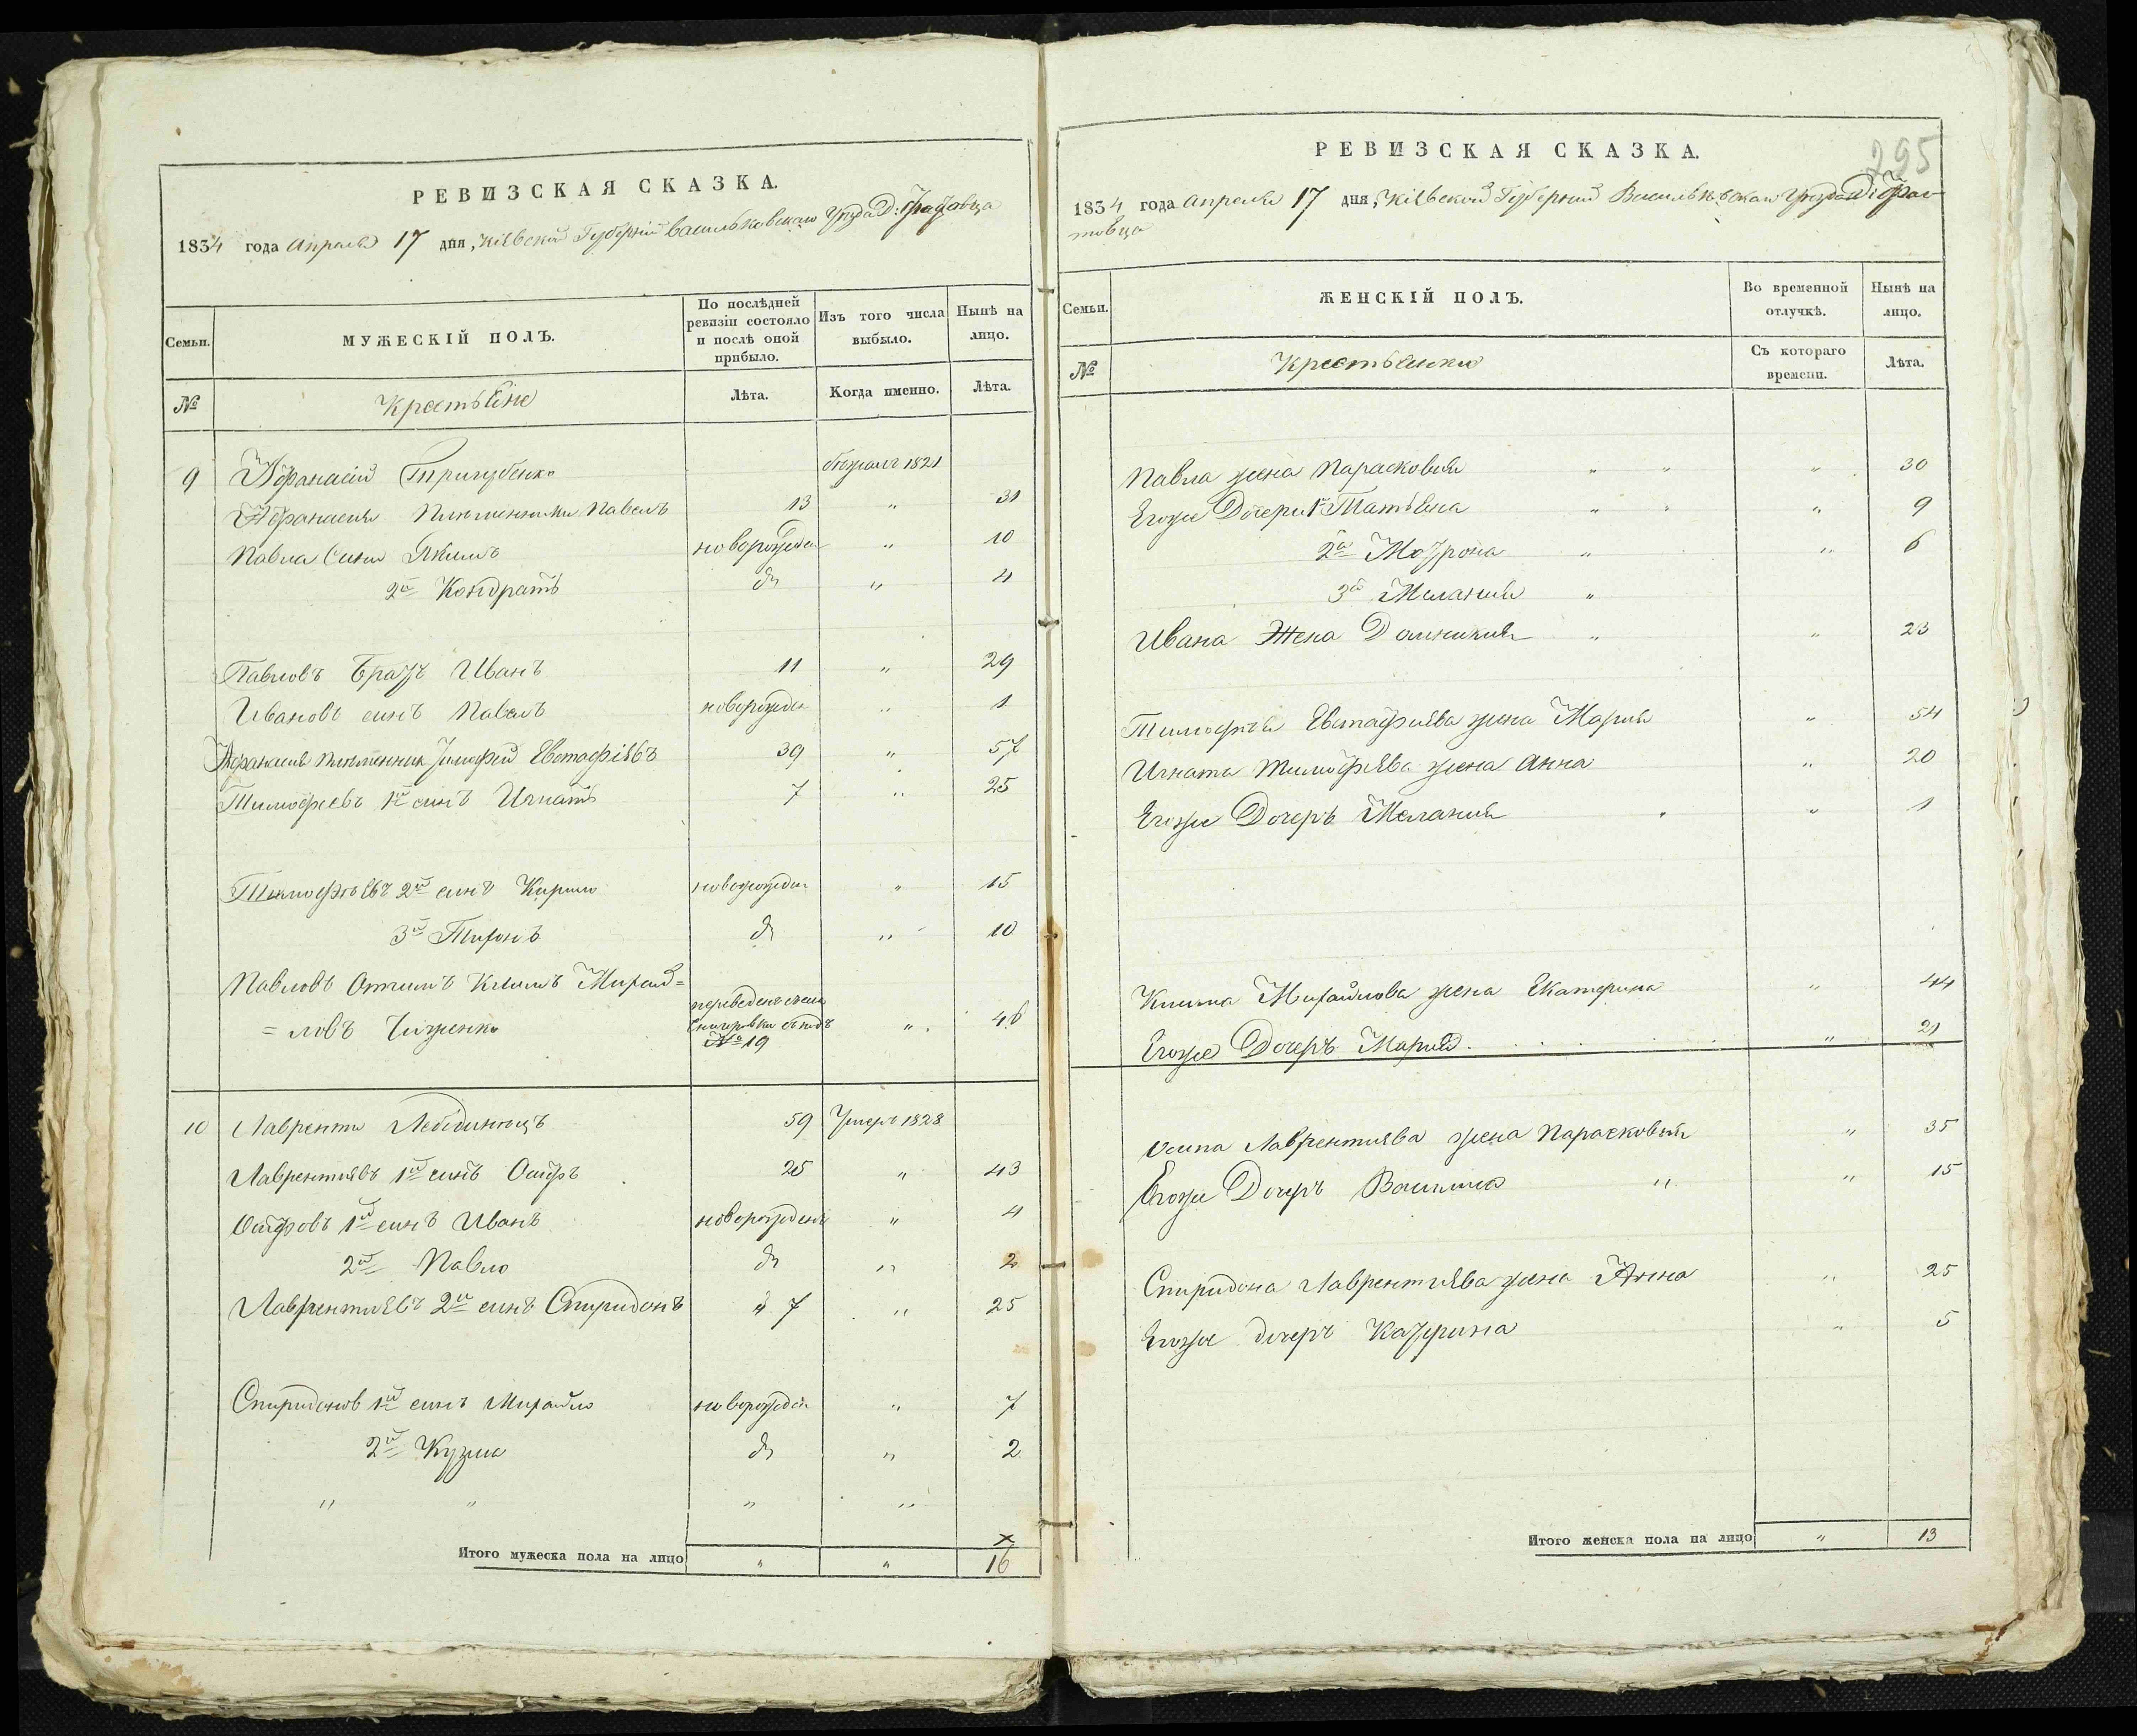 РЕВИЗСКАЯ СКАЗКА.
1834 года Апреля 17 дня, Кіевской Губерніи Васильковскаго Уезда Д:
Семьи.
МУЖЕСКІЙ ПОЛЪ.
По послѣдней ревизіи состояло и послѣ оной прибыло.
Изъ того числа выбыло.
Нынѣ на лицо.
№
Крестьяне
Лѣта.
Когда именно.
Лѣта.
9 Афанасій Тригубенко 1821
Афанасия Племенники Павелъ 13 " 31
Павла Сини Якимъ новорожден " 10
2й Кондратъ до " 4
Павловъ Братъ Иванъ 11 " 29
Ивановъ синъ Павелъ новорожден " 1
Афанасия племенник Тимофей Евстафіевъ 39 " 57
Тимофеевъ 1й синъ Игнатъ 7 " 25
Тимофѣевъ 2й синъ Кирило новорожден " 15
3й Тихонъ до " 10
Павловъ Отчимъ Климъ Михай=
=ловъ переведенъ № 19 " 46
10 Лаврентий 59 Умеръ 1828
Лаврентиевъ 1й синъ Осифъ 25 " 43
Осифовъ 1й синъ Иванъ новорожденъ " 4
2й Павло до " 2
Лаврентиевъ 2й синъ Спиридонъ 7 " 25
Спиридонов 1й синъ Михайло новорожден " 7
2й Кузма до " 2
" " " "
Итого мужеска пола на лицо " " 16
295
РЕВИЗСКАЯ СКАЗКА.
1834 года Апреля 17 дня, Кіевской Губерніи Васильковскаго Уезда Д:
Семьи.
ЖЕНСКІЙ ПОЛЪ.
Во временной отлучкѣ.
Нынѣ на лицо.
№
Крестьянки
Съ котораго времени.
Лѣта.
Павла жена Парасковия " " " 30
Егоже Дочери 1я Татьяна " " " 9
2я Мотрона " " 6
3я Мелания "
Ивана Жена Домникия " " 23
Тимофѣя Евстафиева жена Мария " 54
Игната Тимофиева жена Анна " 20
Егоже Дочеръ Мелания " " 1
Клима Михайлова жена Екатерина " 44
Егоже Дочеръ Мария " 21
Осипа Лаврентиева жена Парасковия " 35
Егоже Дочеръ Василиса " " 15
Спиридона Лаврентиева жена Анна " 25
Егоже дочеръ Катерина " 5
Итого женска пола на лицо " 13